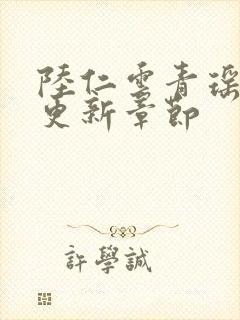 陸仁雲青瑶
更新章節
許學誠